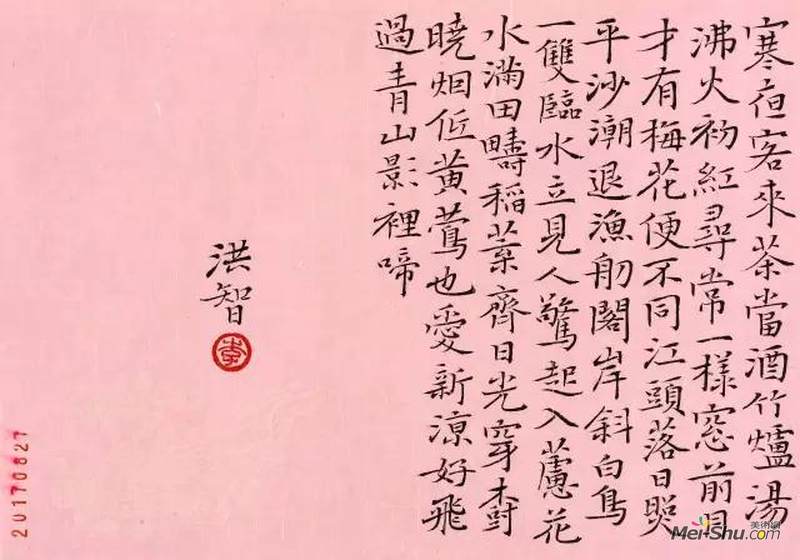 寒夜客來茶當酒竹爐湯
沸火初紅尋常一樣窓前月
才有梅花便不同江頭落日照
平沙潮退漁舠閣岸斜白鳥
一雙臨水立見人驚起入蘆花
水滿田疇稻葉齊日光穿樹
曉烟低黃鶯也愛新涼好飛
過青山影裡啼
洪智
李
20170827
美術網
Mei-Shu.com